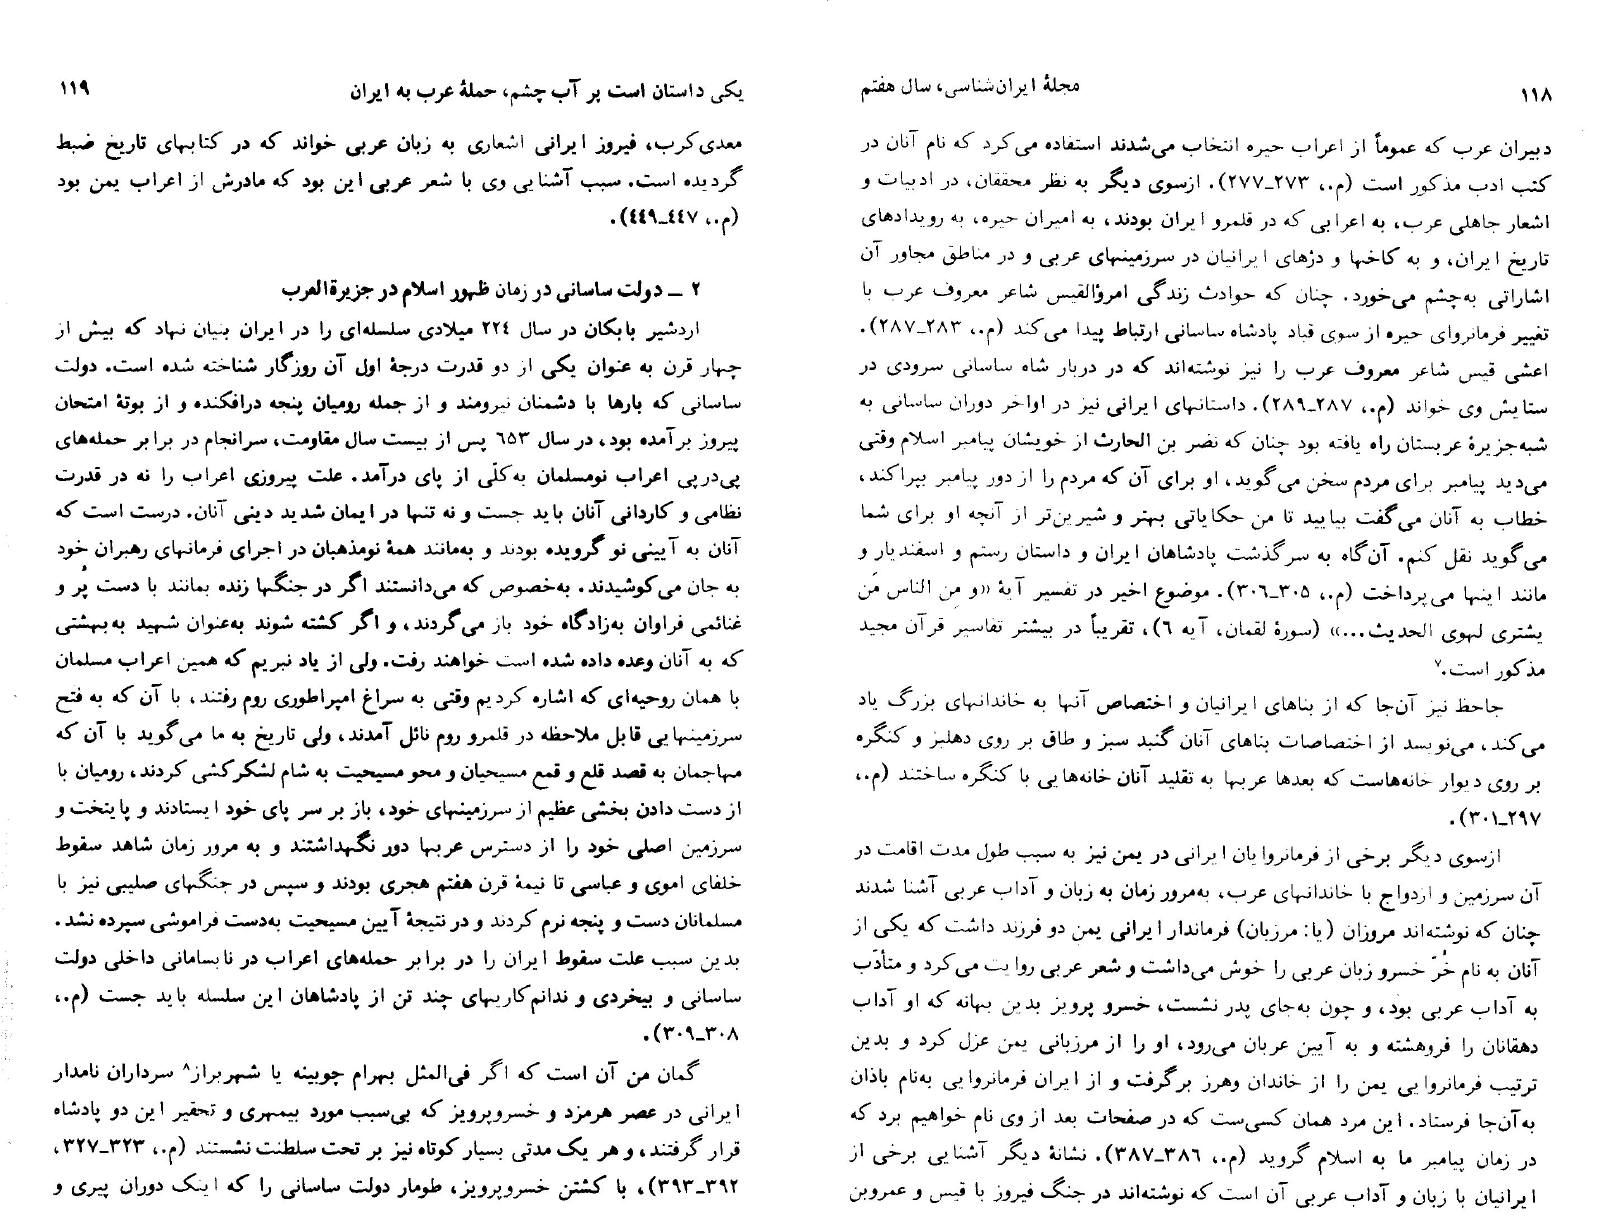 ۱۱۸
مجلهٔ ایران‌شناسی، سال هفتم
دبیران عرب که عموماً از اعراب حیره انتخاب می‌شدند استفاده می‌کرد که نام آنان در
کتب ادب مذکور است (م.، ۲۷۳ـ۲۷۷). ازسوی دیگر به نظر محققان، در ادبیات و
اشعار جاهلی عرب، به اعرابی که در قلمرو ایران بودند، به امیران حیره، به رویدادهای
تاریخ ایران، و به کاخها و دژهای ایرانیان در سرزمینهای عربی و در مناطق مجاور آن
اشاراتی به‌چشم می‌خورد. چنان که حوادث زندگی امرؤالقیس شاعر معروف عرب با
تغییر فرمانروای حیره از سوی قباد پادشاه ساسانی ارتباط پیدا می‌کند (م.، ۲۸۳ـ۲۸۷).
اعشی قیس شاعر معروف عرب را نیز نوشته‌اند که در دربار شاه ساسانی سرودی در
ستایش وی خواند (م.، ۲۸۷ـ۲۸۹). داستانهای ایرانی نیز در اواخر دوران ساسانی به
شبه‌جزیرهٔ عربستان راه یافته بود چنان که نضر بن الحارث از خویشان پیامبر اسلام وقتی
می‌دید پیامبر برای مردم سخن می‌گوید، او برای آن که مردم را از دور پیامبر بپراکند،
خطاب به آنان می‌گفت بیایید تا من حکایاتی بهتر و شیرین‌تر از آنچه او برای شما
می‌گوید نقل کنم. آن‌گاه به سرگذشت پادشاهان ایران و داستان رستم و اسفندیار و
مانند اینها می‌پرداخت (م.، ۳۰۵ـ۳۰۶). موضوع اخیر در تفسیر آیهٔ «و مِن الناس مَن
یشتری لهوی الحدیث...» (سورهٔ لقمان، آیه ۶)، تقریباً در بیشتر تفاسیر قرآن مجید
مذکور است.۷
جاحظ نیز آن‌جا که از بناهای ایرانیان و اختصاص آنها به خاندانهای بزرگ یاد
می‌کند، می‌نویسد از اختصاصات بناهای آنان گنبد سبز و طاق بر روی دهلیز و کنگره
بر روی دیوار خانه‌هاست که بعدها عربها به تقلید آنان خانه‌هایی با کنگره ساختند (م.،
۲۹۷ـ۳۰۱).
ازسوی دیگر برخی از فرمانروایان ایرانی در یمن نیز به سبب طول مدت اقامت در
آن سرزمین و ازدواج با خاندانهای عرب، به‌مرور زمان به زبان و آداب عربی آشنا شدند
چنان که نوشته‌اند مروزان (یا: مرزبان) فرماندار ایرانی یمن دو فرزند داشت که یکی از
آنان به نام خُرّ خسرو زبان عربی را خوش می‌داشت و شعر عربی روایت می‌کرد و متأدّب
به آداب عربی بود، و چون به‌جای پدر نشست، خسرو پرویز بدین بهانه که او آداب
دهقانان را فروهشته و به آیین عربان می‌رود، او را از مرزبانی یمن عزل کرد و بدین
ترتیب فرمانروایی یمن را از خاندان وهرز برگرفت و از ایران فرمانروایی به‌نام باذان
به‌آن‌جا فرستاد. این مرد همان کسی‌ست که در صفحات بعد از وی نام خواهیم برد که
در زمان پیامبر ما به اسلام گروید (م.، ۳۸۶ـ۳۸۷). نشانهٔ دیگر آشنایی برخی از
ایرانیان با زبان و آداب عربی آن است که نوشته‌اند در جنگ فیروز با قیس و عمروبن
یکی داستان است پر آب چشم، حملهٔ عرب به ایران
۱۱۹
معدی‌کرب، فیروز ایرانی اشعاری به زبان عربی خواند که در کتابهای تاریخ ضبط
گردیده است. سبب آشنایی وی با شعر عربی این بود که مادرش از اعراب یمن بود
(م.، ۴۴۷ـ۴۴۹).
۲ ـ دولت ساسانی در زمان ظهور اسلام در جزیرةالعرب
اردشیر بابکان در سال ۲۲۴ میلادی سلسله‌ای را در ایران بنیان نهاد که بیش از
چهار قرن به عنوان یکی از دو قدرت درجهٔ اول آن روزگار شناخته شده است. دولت
ساسانی که بارها با دشمنان نیرومند و از جمله رومیان پنجه درافکنده و از بوتهٔ امتحان
پیروز برآمده بود، در سال ۶۵۳ پس از بیست سال مقاومت، سرانجام در برابر حمله‌های
پی‌درپی اعراب نومسلمان به‌کلّی از پای درآمد. علت پیروزی اعراب را نه در قدرت
نظامی و کاردانی آنان باید جست و نه تنها در ایمان شدید دینی آنان. درست است که
آنان به آیینی نو گرویده بودند و به‌مانند همهٔ نومذهبان در اجرای فرمانهای رهبران خود
به جان می‌کوشیدند. به‌خصوص که می‌دانستند اگر در جنگها زنده بمانند با دست پُر و
غنائمی فراوان به‌زادگاه خود باز می‌گردند، و اگر کشته شوند به‌عنوان شهید به‌بهشتی
که به آنان وعده داده شده است خواهند رفت. ولی از یاد نبریم که همین اعراب مسلمان
با همان روحیه‌ای که اشاره کردیم وقتی به سراغ امپراطوری روم رفتند، با آن که به فتح
سرزمینهایی قابل ملاحظه در قلمرو روم نائل آمدند، ولی تاریخ به ما می‌گوید با آن که
مهاجمان به قصد قلع و قمع مسیحیان و محو مسیحیت به شام لشکرکشی کردند، رومیان با
از دست دادن بخشی عظیم از سرزمینهای خود، باز بر سر پای خود ایستادند و پایتخت و
سرزمین اصلی خود را از دسترس عربها دور نگهداشتند و به مرور زمان شاهد سقوط
خلفای اموی و عباسی تا نیمهٔ قرن هفتم هجری بودند و سپس در جنگهای صلیبی نیز با
مسلمانان دست و پنجه نرم کردند و در نتیجهٔ آیین مسیحیت به‌دست فراموشی سپرده نشد.
بدین سبب علت سقوط ایران را در برابر حمله‌های اعراب در نابسامانی داخلی دولت
ساسانی و بیخردی و ندانم‌کاریهای چند تن از پادشاهان این سلسله باید جست (م.،
۳۰۸ـ۳۰۹).
گمان من آن است که اگر فی‌المثل بهرام چوبینه یا شهربراز۸ سرداران نامدار
ایرانی در عصر هرمزد و خسروپرویز که بی‌سبب مورد بیمهری و تحقیر این دو پادشاه
قرار گرفتند، و هر یک مدتی بسیار کوتاه نیز بر تحت سلطنت نشستند (م.، ۳۲۳ـ۳۲۷،
۳۹۲ـ۳۹۳)، با کشتن خسروپرویز، طومار دولت ساسانی را که اینک دوران پیری و